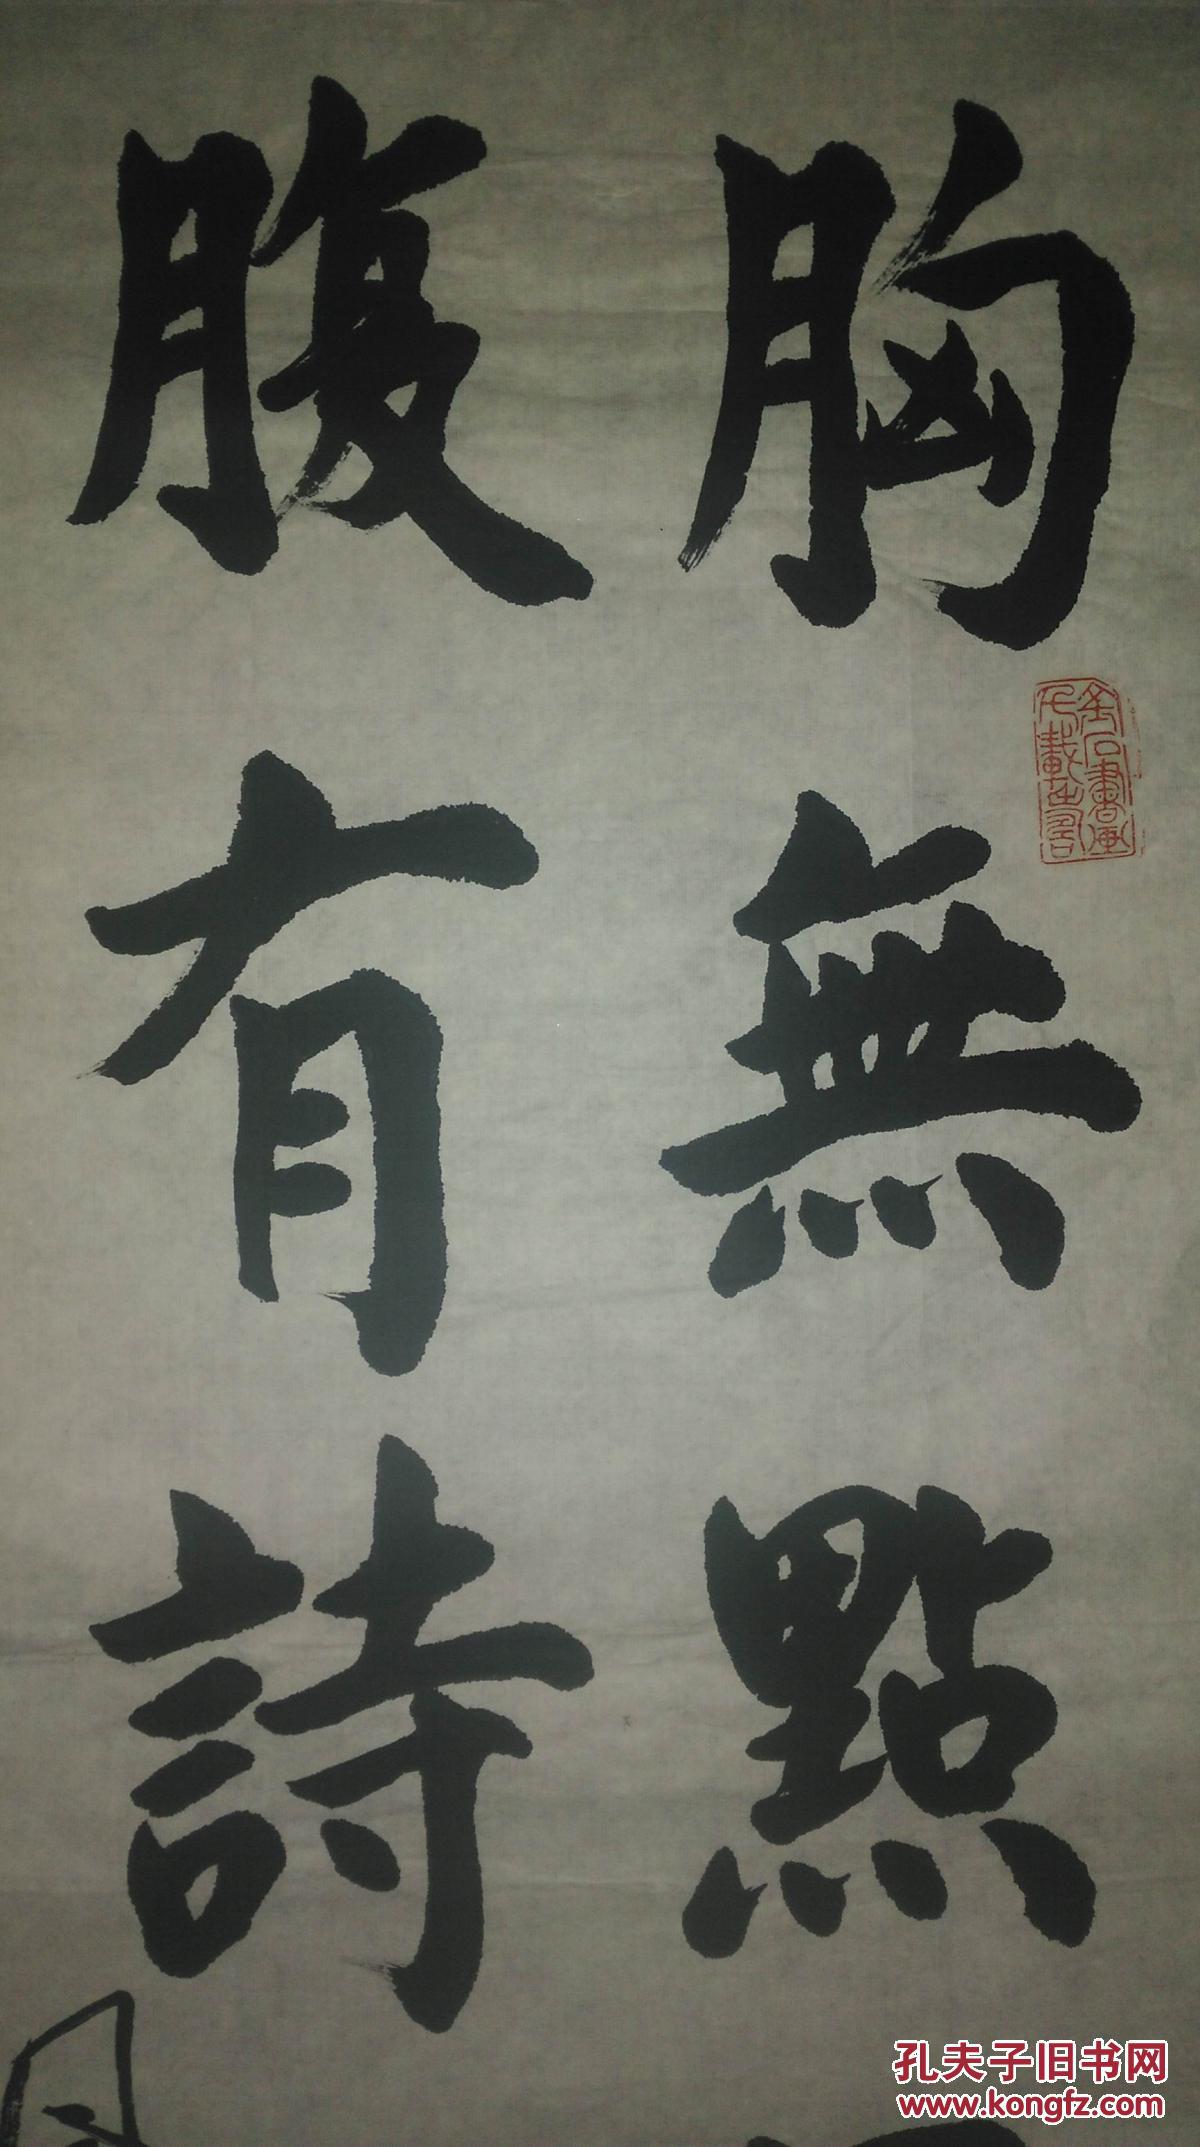 胸無點
腹有詩
孔夫子旧书网
www.kongfz.com